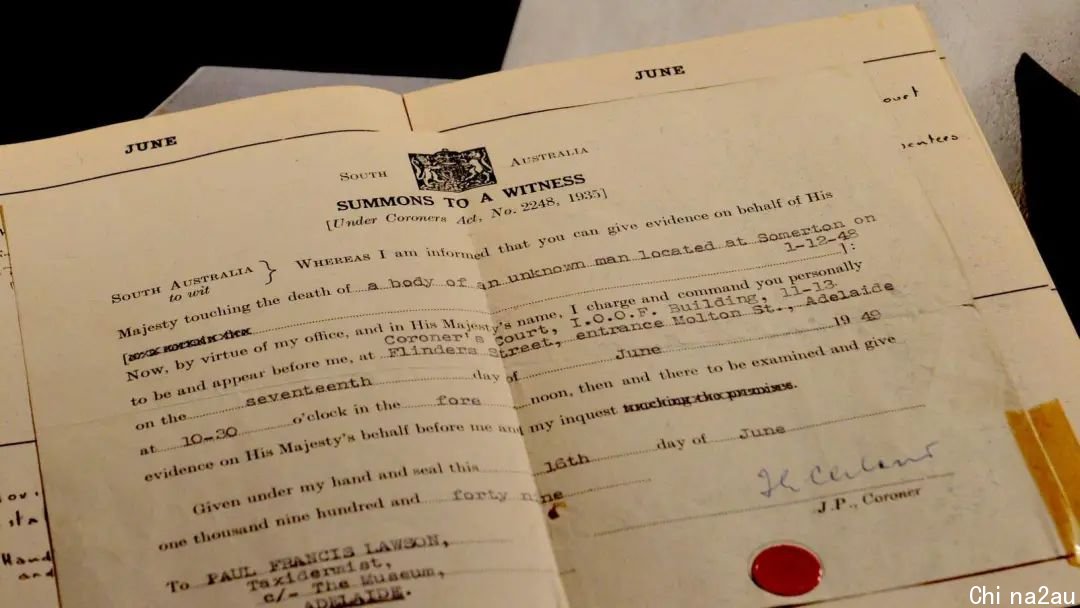 JUNE
JUNE
SOUTH AUSTRALIA
SUMMONS TO A WITNESS
[Under Coroners Act, No. 2248, 1935]
SOUTH AUSTRALIA } to wit
WHEREAS I am informed that you can give evidence on behalf of His
Majesty touching the death of a body of an unknown man located at Somerton on
1-12-48
]:
Now, by virtue of my office, and in His Majesty's name, I charge and command you personally
to be and appear before me, at Coroner's Court, I.O.O.F. Building, 11-13
Flinders Street, entrance Molton St., Adelaide
on the seventeenth day of June 19 49
at 10-30 o'clock in the fore noon, then and there to be examined and give
evidence on His Majesty's behalf before me and my inquest touching the premises.
Given under my hand and seal this 16th day of June
one thousand nine hundred and forty nine
J.P., Coroner
To PAUL FRANCIS LAWSON,
Taxidermist,
c/- The Museum,
ADELAIDE.
ourt
Hand
and
Chi na2au